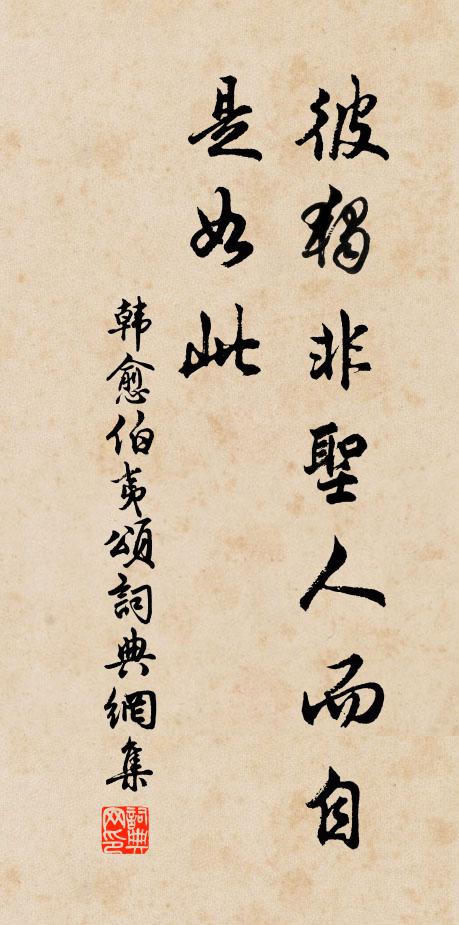 彼獨非聖人而自
是如此
韩愈伯夷頌詞典網集
詞典
网印